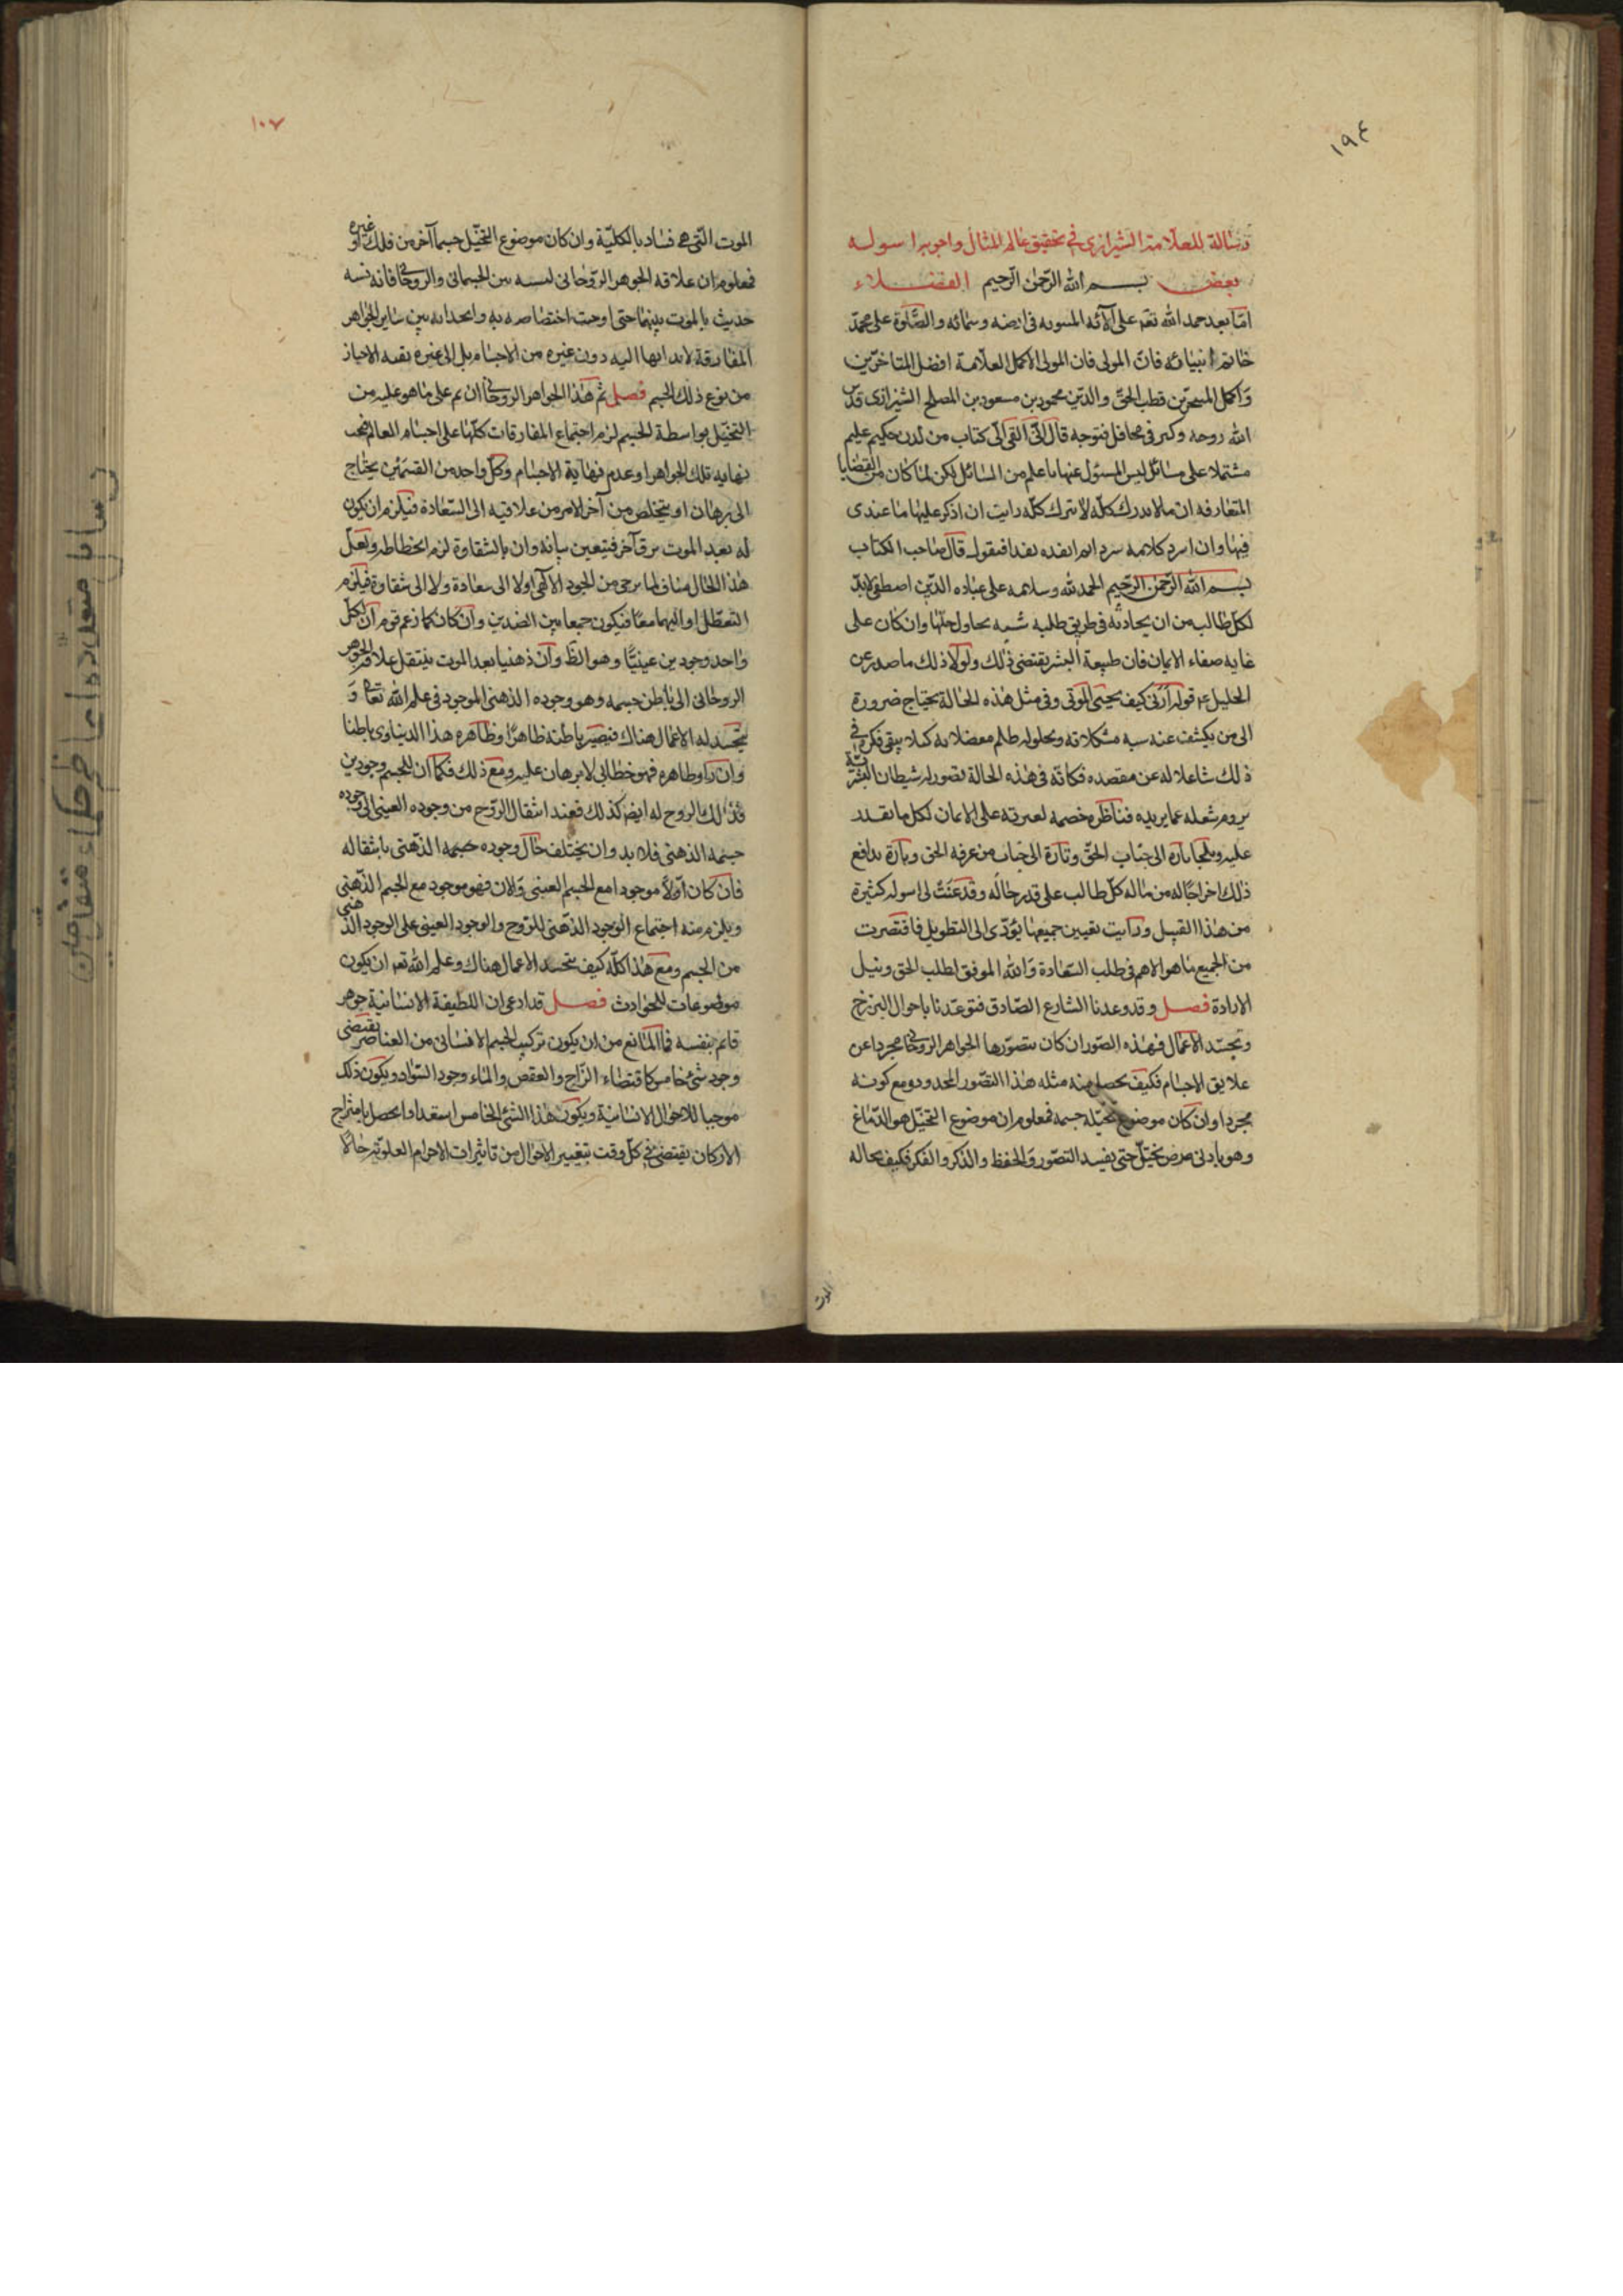 ١٩٤
رسالة للعلامة الشيرازى فى تحقيق عالم المثال واجوبة اسولة
بعض بسم الله الرحمن الرحيم الفضلاء
اما بعد حمد الله تعم على آلائه فى ارضه وسمائه والصلوة على محمد
خاتم انبيائه فان المولى فان المولى الاكمل العلامة افضل المتاخرين
واكمل المتبحرين قطب الحق والدين محمود بن مسعود بن المصلح الشيرازى قدس
الله روحه وكبر فى محافل فتوحه قال انى القى الى كتاب من لدن حكيم عليم
مشتملا على مسائل ليس المسئول عنها باعلم من السائل لكن لما كان من القضايا
المتعارفه ان مالا يدرك كله لا يترك كله رايت ان اذكر عليها ما عندى
فيها وان اسرد كلامه سردا ثم انقده نقدا فنقول قال صاحب الكتاب
بسم الله الرحمن الرحيم الحمد لله وسلامه على عباده الذين اصطفى لابد
لكل طالب من ان يحاذيه فى طريق طلبه شبه يحاول حلها وان كان على
غاية صفاء الايمان فان طبيعة البشر يقتضى ذلك ولولا ذلك ما صدر عن
الخليل عم قوله ارنى كيف يحيى الموتى وفى مثل هذه الحالة يحتاج ضرورة
الى من يكشف عنه شبه مشكلاته ويحلو له ظلم معضلاته كيلا يبقى فكره فى
ذلك شاغلا له عن مقصده فكانه فى هذه الحالة تصور له شيطان البشرية
يروم شغله عما يريده فناظره خصمه لغيرته على الايمان لكل ما يقدر
عليه ويلجا تارة الى جناب الحق وتارة الى جناب من عرفه الحق وتارة يدافع
ذلك اخراجا له من ماله كل طالب على قدر حاله وقد عنت لى اسولة كثيرة
من هذا القبيل ورايت تعيين جميعها يؤدى الى التطويل فاقتصرت
من الجميع ما هو الاهم فى طلب السعادة والله الموفق لطلب الحق ونيل
الارادة فصل وقد وعدنا الشارع الصادق فتوعدنا باحوال البرزخ
وتجسد الاعمال فهذه الصور ان كان يتصورها الجواهر الروحانى مجردا عن
علايق الاجسام فكيف يحصل منه مثله هذا التصور المحدود ومع كونه
مجردا وان كان موضوع تخيله جسمه فمعلوم ان موضوع التخيل هو الدماغ
وهو بادنى مرض يختل حتى يفسد التصور والحفظ والذكر والفكر فكيف بحاله
الموت
١٠٧
الموت التى هى فساد بالكلية وان كان موضوع التخيل جسما آخر من فلك او غيره
فمعلوم ان علاقه الجوهر الروحانى نسبه بين الجسمانى والروحانى فانه نسبه
حديث بالموت بينهما حتى اوجبت اختصاصه به وانجذابه من ساير الجواهر
المفارقة لابدانها اليه دون غيره من الاجسام بل الى غيره بقية الاحياز
من نوع ذلك الجسم فصل ثم هذا الجواهر الروحانى ان تم على ما هو عليه من
التخيل بواسطة الجسم لزم اجتماع المفارقات كلها على اجسام العالم فيجب
نهايه تلك الجواهر او عدم نهاية الاجسام وكل واحد من القسمين يحتاج
الى برهان او يتخلص من آخر الامر من علاقته الى السعادة فيلزم ان يكون
له بعد الموت ترق آخر فيتعين بيانه وان بالشقاوة لزم انحطاطه ولعل
هذا الحال مناف لما يرجى من الجود الالهى اولا الى سعادة ولا الى شقاوة فيلزم
التعطل او اليهما معا فيكون جمعا بين الضدين وان كان كما زعم قوم ان لكل
واحد وجودين عينيا وهو الظ وان ذهنيا بعد الموت ينتقل علاقة الجوهر
الروحانى الى باطن جسمه وهو وجوده الذهنى الموجود فى علم الله تعالى و
يتجسد له الاعمال هناك فيصير باطنه ظاهرا وظاهره هذا الدنياوى باطنا
وان ظاهره فهو خطابى لا برهان عليه ومع ذلك فكما ان للجسم وجودين
فذلك الروح له ايضا كذلك فعند انتقال الروح من وجوده العينى الى وجوده
جسمه الذهنى فلابد وان يختلف حال وجوده جسمه الذهنى بانتقاله
فان كان اولا موجودا مع الجسم العينى والان فهو موجود مع الجسم الذهنى
ويلزم منه اجتماع الوجود الذهنى للروح والوجود العينى على الوجود الذهنى
من الجسم ومع هذا كله كيف يتجسد الاعمال هناك وعلم الله تعم ان يكون
موضوعات للحوادث فصل قد ادعى ان اللطيفة الانسانية جوهر
قائم بنفسه فما المانع من ان يكون تركيب الجسم الانسانى من العناصر يقتضى
وجود شئ خامس كاقتضاء الزاج والعفص والماء وجود السواد ويكون ذلك
موجبا للاحوال الانسانية ويكون هذا الشئ الخامس استعدادا يحصل بامتزاج
الاركان يقتضى فى كل وقت بتغيير الاحوال من تاثيرات الاجرام العلوية حالا